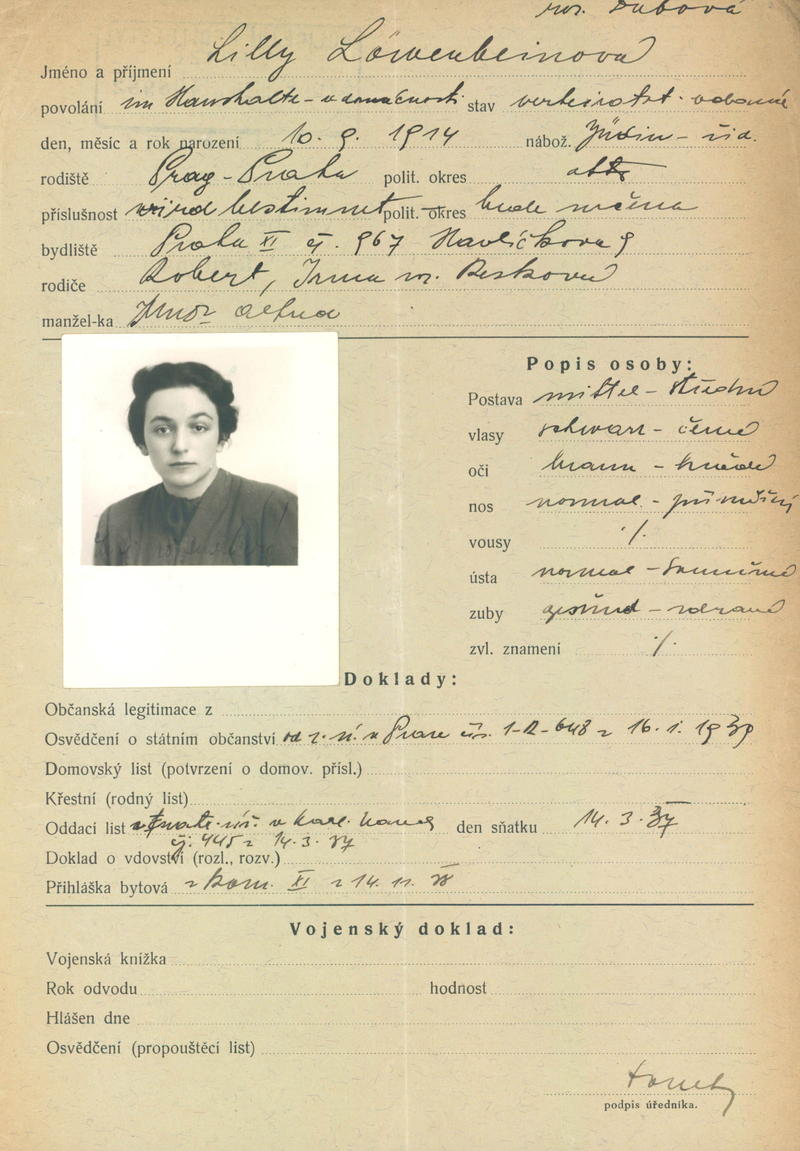 roz. Dubová
Jméno a příjmení Lilly Löwenbeinová
povolání im Haushalte - v domácnosti stav verheiratet - vdaná
den, měsíc a rok narození 10. 9. 1914 nábož. Jüdin - žid.
rodiště Prag - Praha polit. okres
příslušnost wird bestimmt polit. okres bude určena
bydliště Praha XI čj. 967 Havlíčkova 9
rodiče Robert, Irma roz.
manžel-ka
Popis osoby:
Postava mittel - střední
vlasy schwarz - černé
oči braun - hnědé
nos normal - přiměřený
vousy ·/.
ústa normal - souměrná
zuby gesund - zdravé
zvl. znamení ·/.
Doklady:
Občanská legitimace z
Osvědčení o státním občanství od z. ú. v Praze čís. 1-A-648 z 16. 1. 1939
Domovský list (potvrzení o domov. přísl.)
Křestní (rodný list)
Oddací list den sňatku 14. 3. 37
čj. 445 z 14. 3. 37
Doklad o vdovství (rozl., rozv.)
Přihláška bytová z kom. XI z 14. 11. 38
Vojenský doklad:
Vojenská knížka
Rok odvodu hodnost
Hlášen dne
Osvědčení (propouštěcí list)
podpis úředníka.